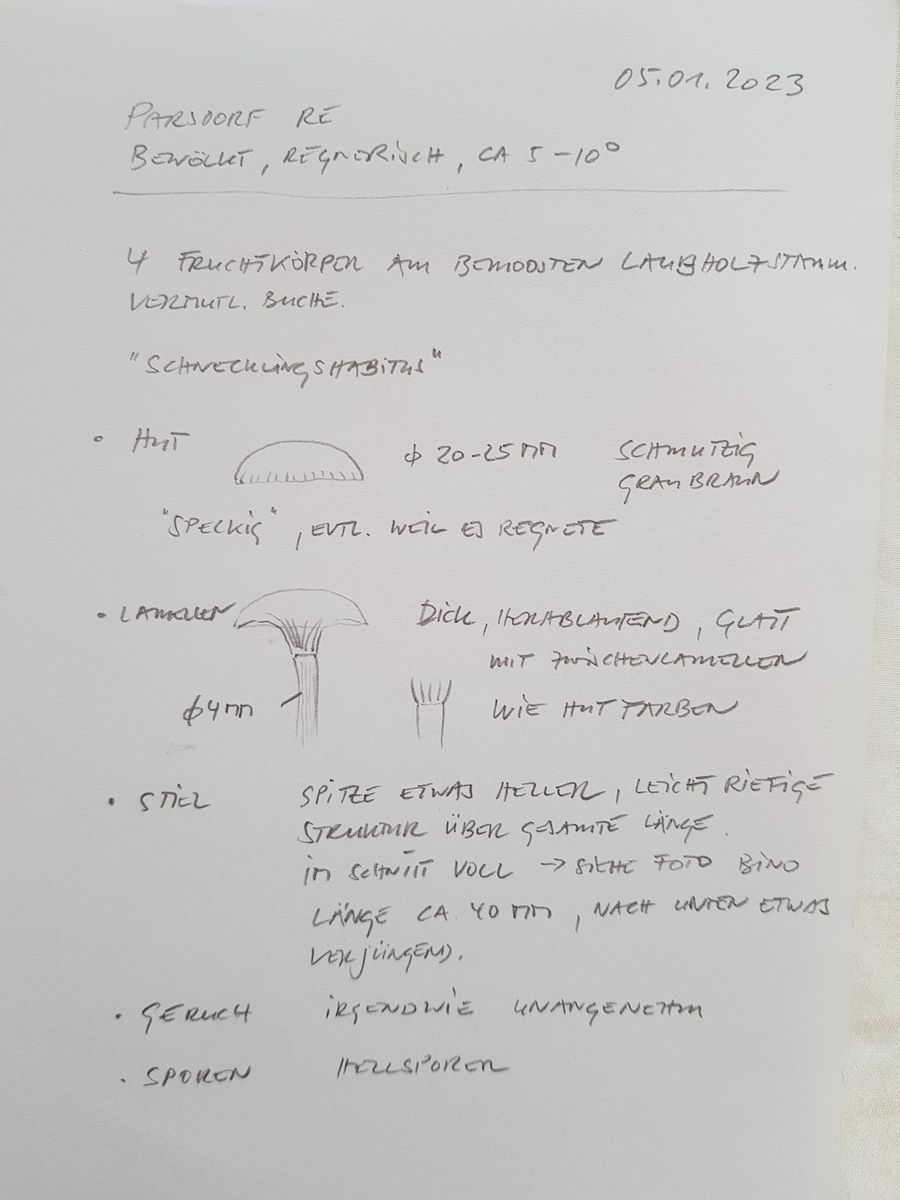 05.01.2023
PARSDORF RE
BEWÖLKT, REGNERISCH, CA 5-10°
4 FRUCHTKÖRPER AM BEMOOSTEN LAUBHOLZSTAMM.
VERMUTL. BUCHE.
"SCHNECKLINGSHABITUS"
• HUT ϕ 20-25 mm SCHMUTZIG
GRAUBRAUN
"SPECKIG", EVTL. WEIL ES REGNETE
• LAMELLEN DICK, HERABLAUFEND, GLATT
MIT ZWISCHENLAMELLEN
ϕ 4mm WIE HUT FARBEN
• STIEL SPITZE ETWAS HELLER, LEICHT RIEFIGE
STRUKTUR ÜBER GESAMTE LÄNGE.
IM SCHNITT VOLL → SIEHE FOTO BINO
LÄNGE CA. 40 mm, NACH UNTEN ETWAS
VERJÜNGEND.
• GERUCH IRGENDWIE UNANGENEHM
• SPOREN HELLSPORER